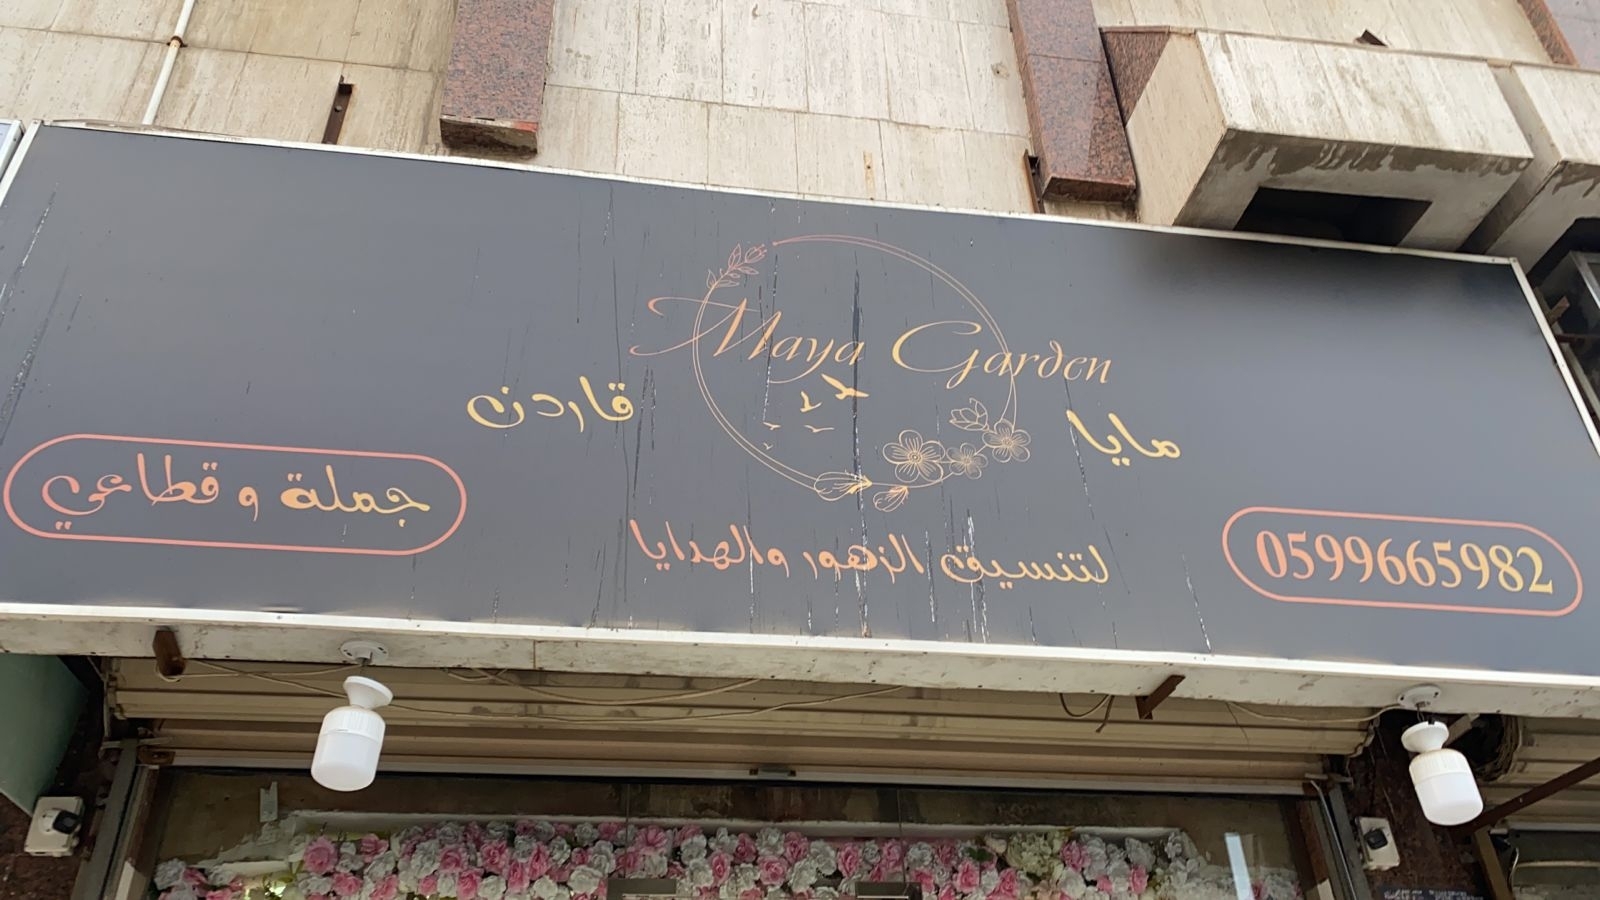 Maya Garden
مايا قاردن
لتنسيق الزهور والهدايا
جملة و قطاعي
0599665982